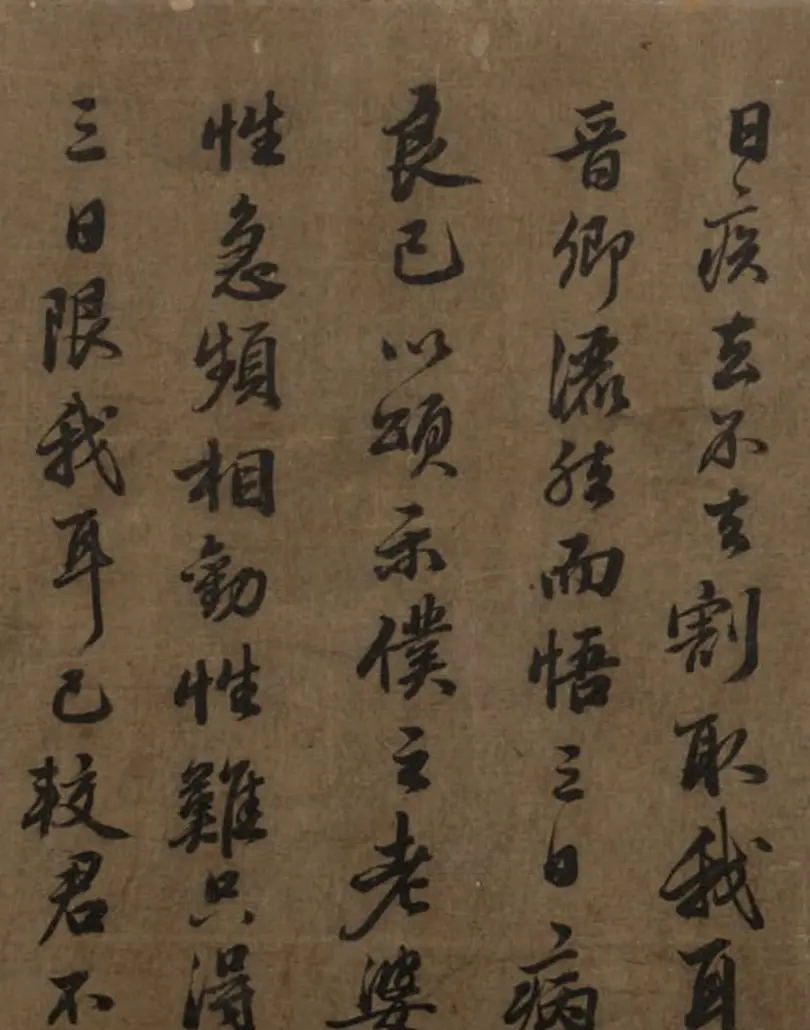 日疾去不去割取我耳
晋卿洒然而悟三日病
良已以颂示僕云老婆
性急频相勸性難只得
三日限我耳已較君不